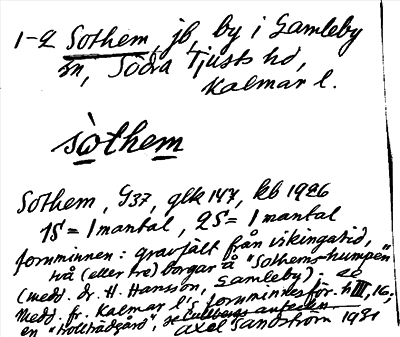 1-2 Sothem, jb, by i Gamleby
sn, Södra Tjusts hd,
Kalmar l.
sòthem
Sothem, G37, glk 147, kb 1926
1S = 1 mantal, 2S = 1 mantal
fornminnen: gravfält från vikingatid,
två (eller tre) borgar å "Sothemshumpen"
(medd. dr. H. Hansson, Gamleby); se
Medd. fr. Kalmar l:s fornminnesför. h III, 16;
en "Hollträdgård", se
Axel Sandström 1931